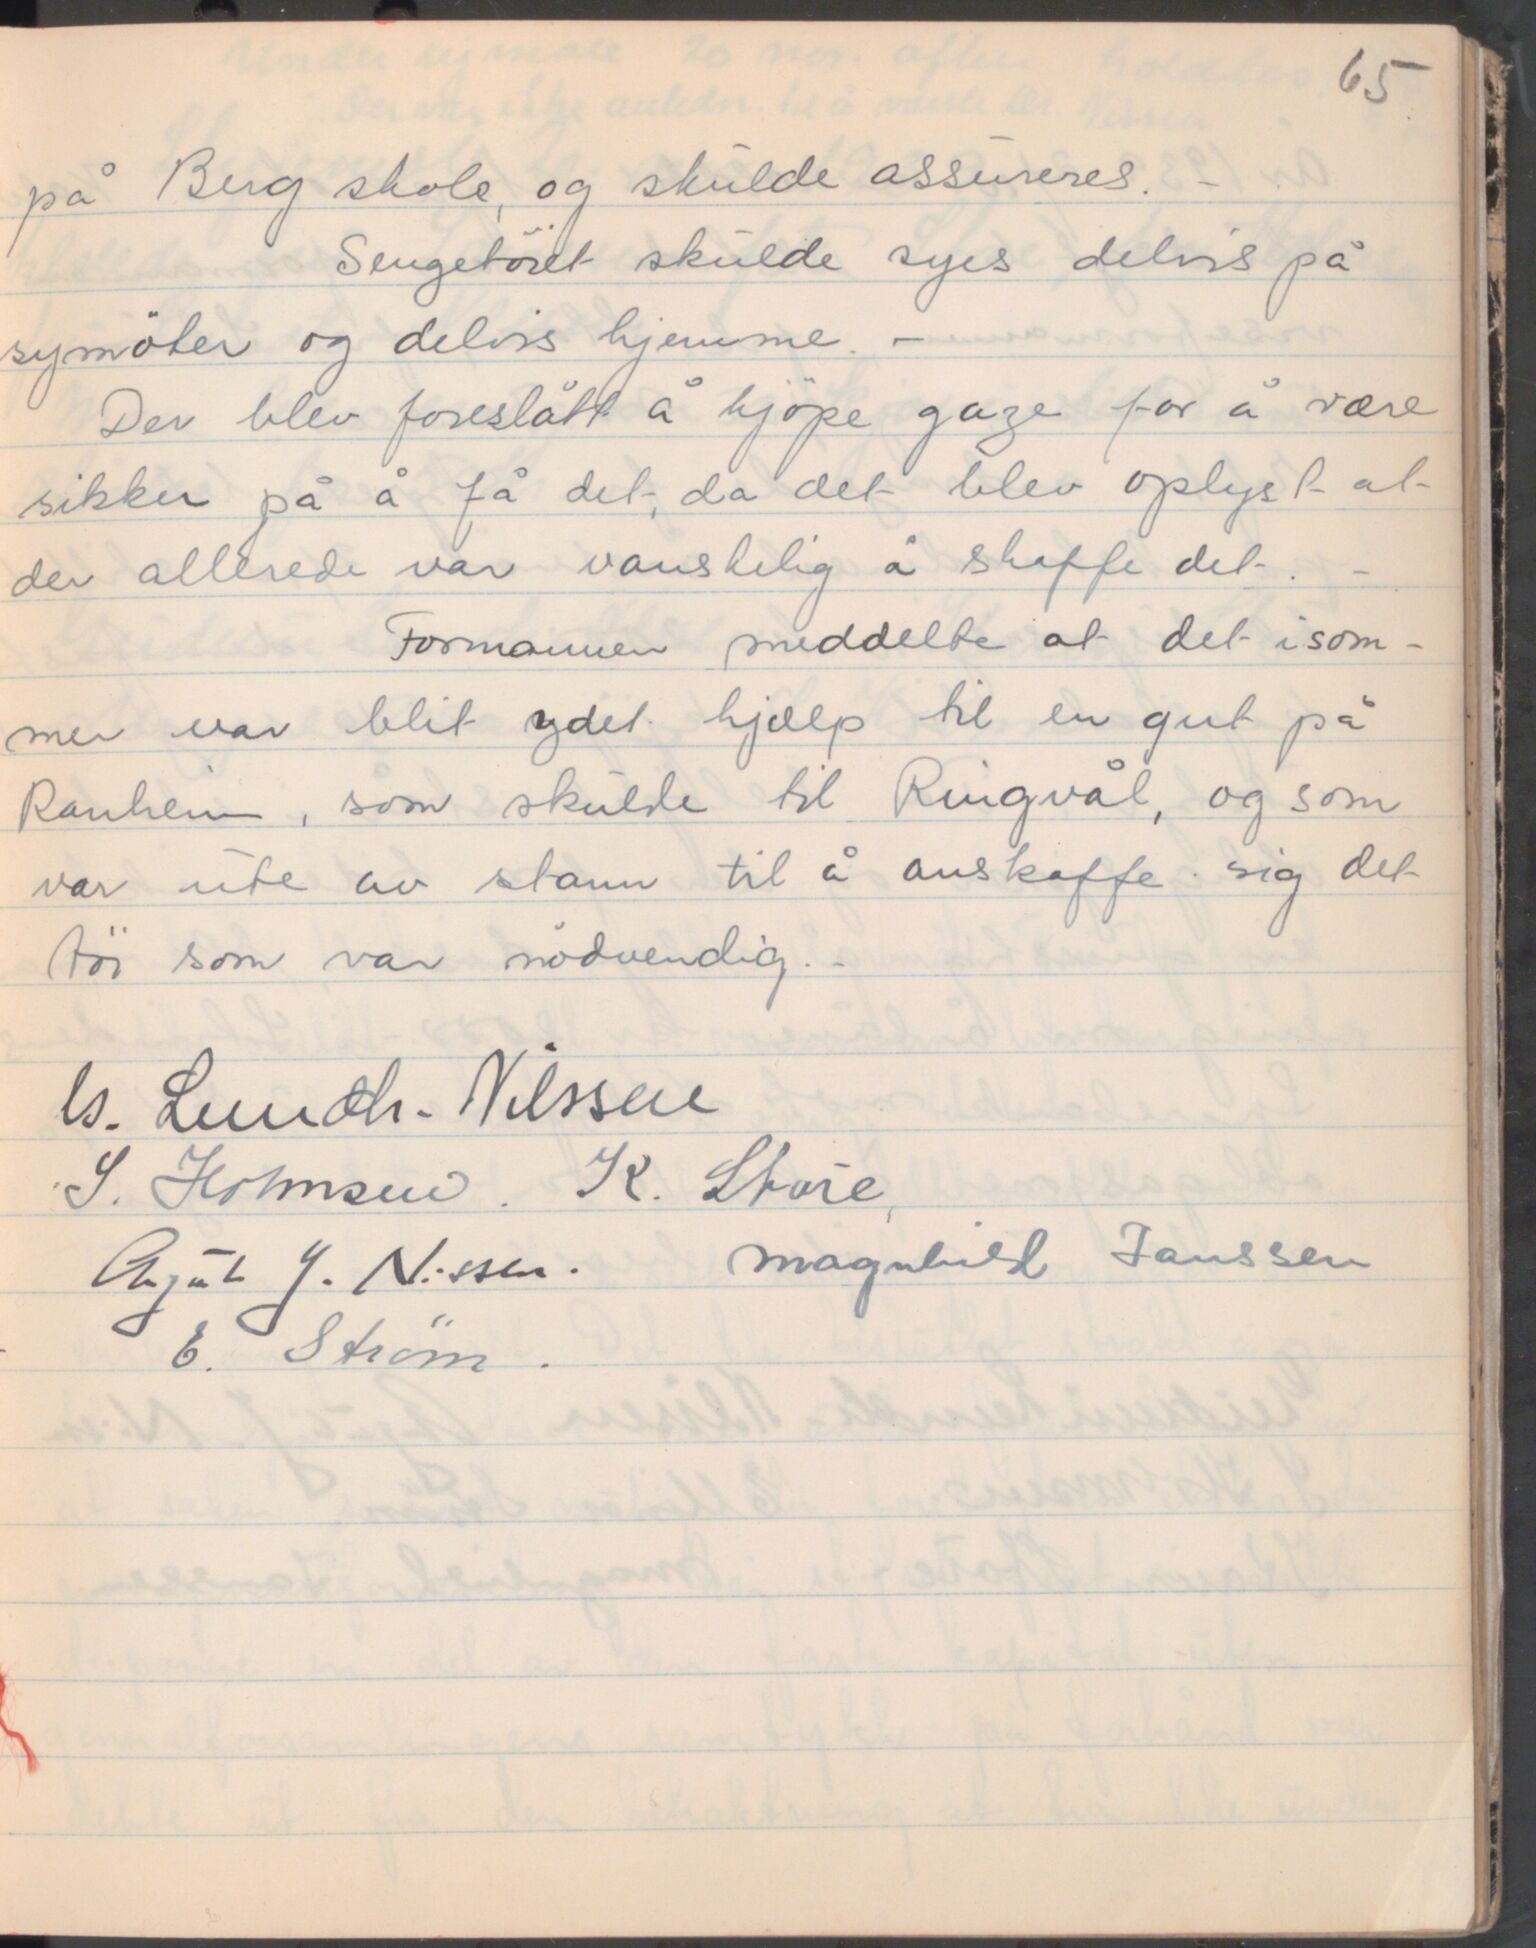 65
på Berg skole, og skulde assureres. -
Sengetöiet skulde syes delvis på
symöter og delvis hjemme. -
Der blev foreslått å kjöpe gaze for å være
sikker på å få det, da det blev oplyst at
der allerede var vanskelig å skaffe det. -
Formannen meddelte at det i som-
mer var blit ydet hjælp til en gut på
Ranheim, som skulde til Ringvål, og som
var ute av stann til å anskaffe sig det
töi som var nödvendig. -
Lundh-Nilssen
S. Holmsen. K. Støre,
J. Nissen. Magnhild Janssen
E. Ström.